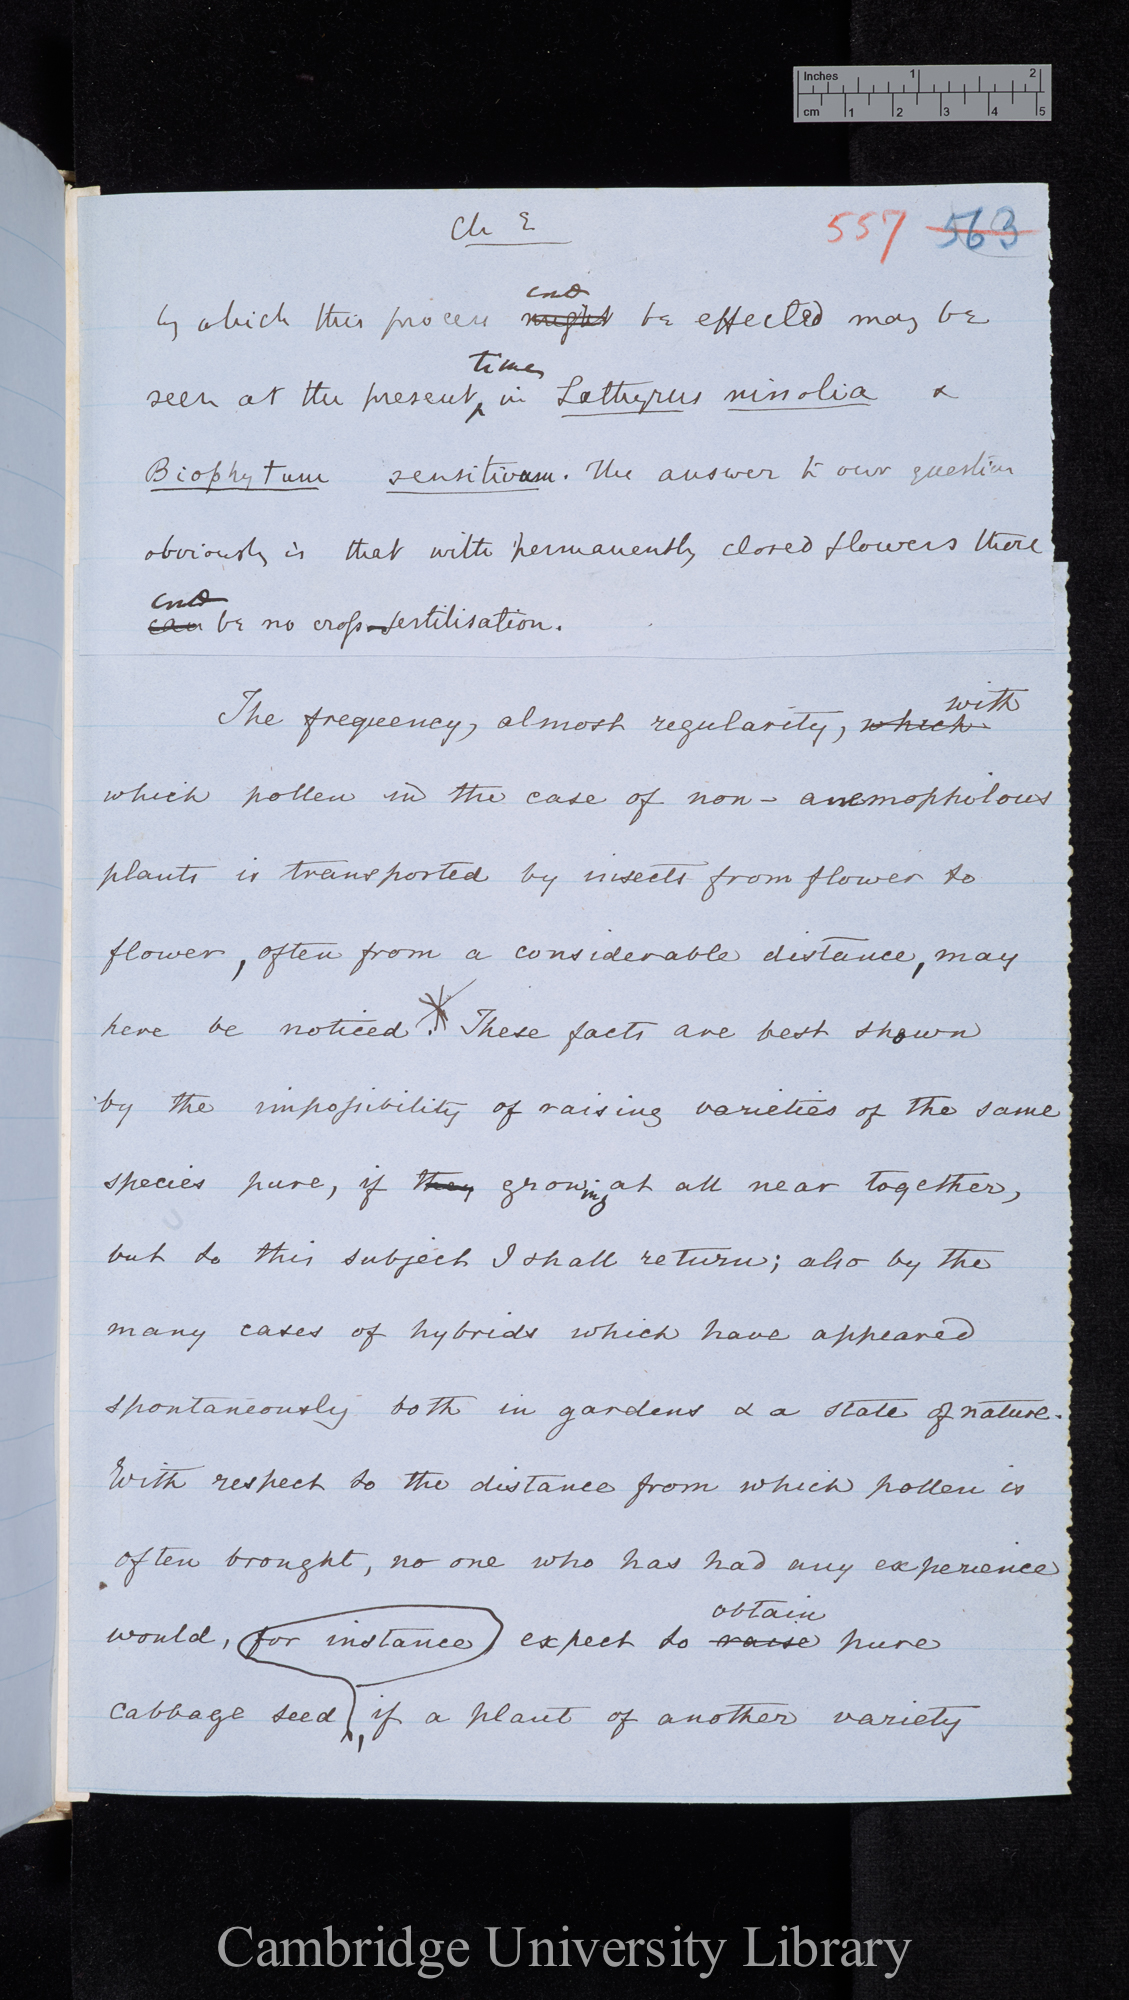 Inches 1 2
cm 1 2 3 4 5
Ch E
557 563
by which this process might could be effected may be
seen at the present time, in Lathyrus nissolia &
Biophytum sensitivum. The answer to our question
obviously is that with permanently closed flowers there
can could be no cross-fertilisation.
The frequency, almost regularity, which with
which pollen in the case of non-anemophilous
plants is transported by insects from flower to
flower, often from a considerable distance, may
here be noticed.* These facts are best shown
by the impossibility of raising varieties of the same
species pure, if they growing at all near together,
but to this subject I shall return; also by the
many cases of hybrids which have appeared
spontaneously both in gardens & a state of nature.
With respect to the distance from which pollen is
often brought, no one who has had any experience
would, for instance expect to raise obtain pure
cabbage seed, if a plant of another variety
Cambridge University Library